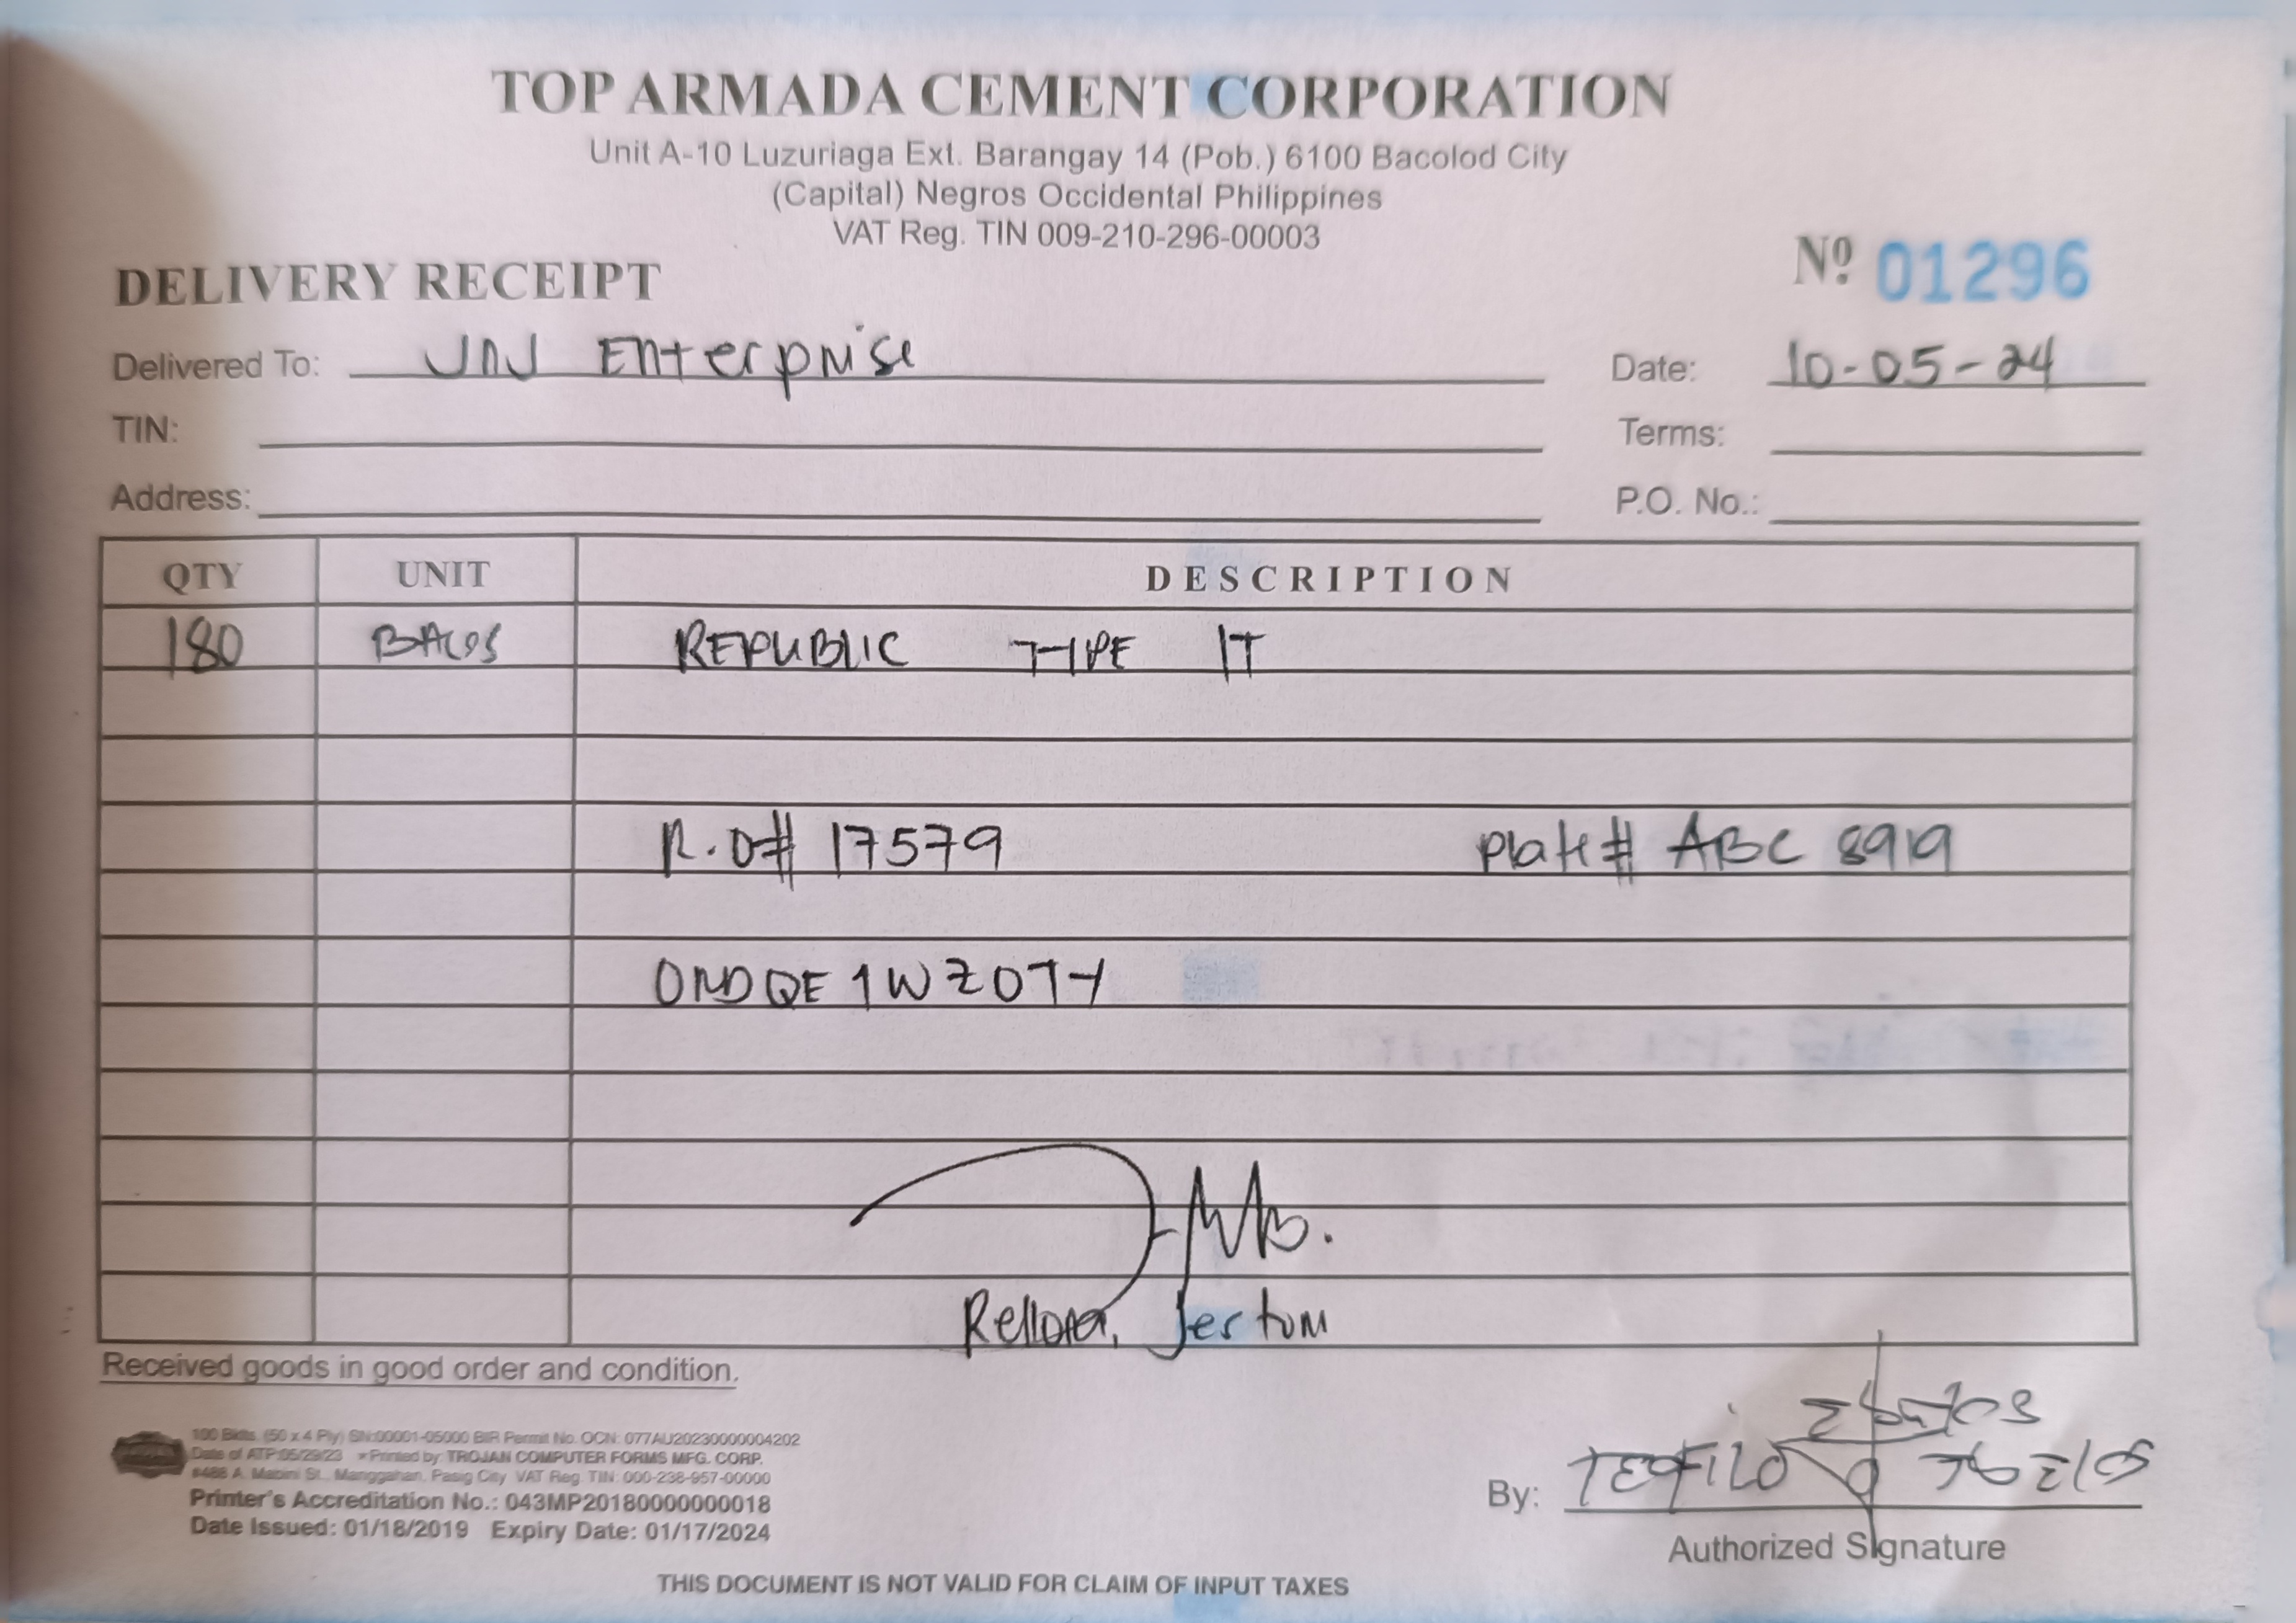 TOP ARMADA CEMENT CORPORATION
Unit A-10 Luzuriaga Ext. Barangay 14 (Pob.) 6100 Bacolod City
(Capital) Negros Occidental Philippines
VAT Reg. TIN 009-210-296-00003
DELIVERY RECEIPT Nº 01296
Delivered To: JNJ Enterprise Date: 10-05-24
TIN: Terms:
Address: P.O. No.:
QTY UNIT DESCRIPTION
180 BAGS REPUBLIC TYPE 1T
R.O# 17579 Plate# ABC 8919
ORDQE1WZ0TY
Rellora, Jestom
Received goods in good order and condition.
100 Bklts. (50 x 4 Ply) SN:00001-05000 BIR Permit No. OCN: 077AU20230000004202
Date of ATP:05/29/23 Printed by: TROJAN COMPUTER FORMS MFG. CORP.
#488 A. Mabini St., Manggahan, Pasig City VAT Reg. TIN: 000-238-957-00000
Printer's Accreditation No.: 043MP20180000000018
Date Issued: 01/18/2019 Expiry Date: 01/17/2024
By: TEOFILO
Authorized Signature
THIS DOCUMENT IS NOT VALID FOR CLAIM OF INPUT TAXES